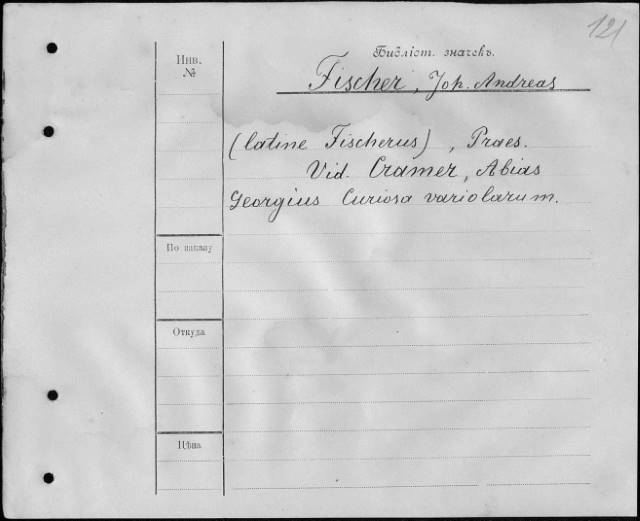 121
Библіот. значекъ.
Инв.
№
Fischer, Joh. Andreas
(latine Fischerus), Praes.
Vid. Cramer, Abias
Georgius Curiosa variolarum.
По каталу
Откуда
Цѣна